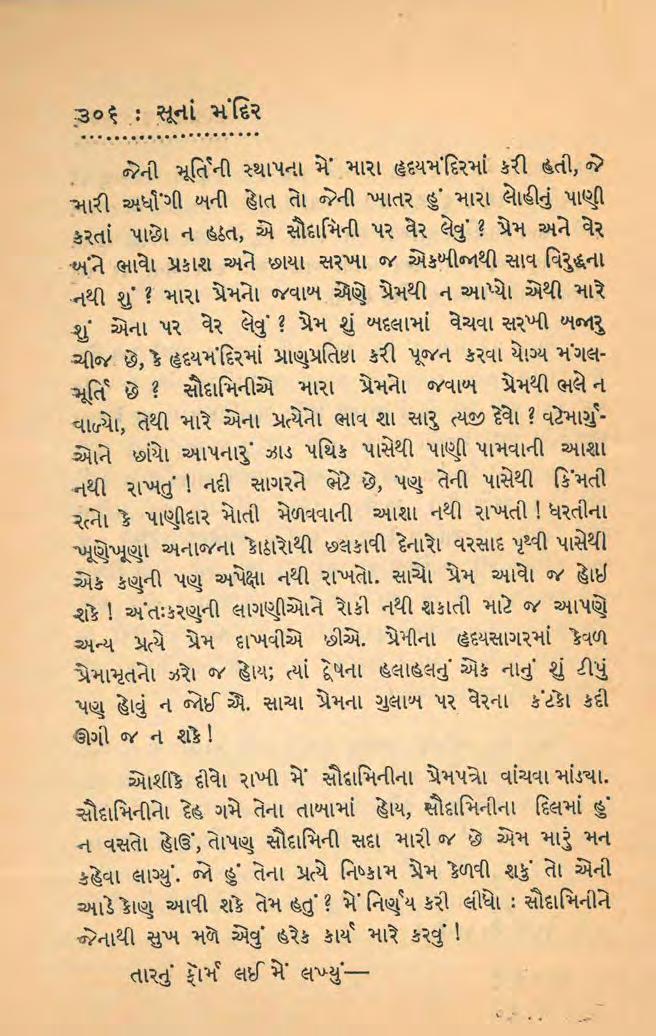 ૩૦૬ : સૂનાં મંદિર
જેની મૂર્તિની સ્થાપના મેં મારા હૃદયમંદિરમાં કરી હતી, જે
મારી અર્ધાંગી બની હોત તો જેની ખાતર હું મારા લોહીનું પાણી
કરતાં પાછો ન હઠત, એ સૌદામિની પર વેર લેવું ? પ્રેમ અને વેર
બંને ભાવો પ્રકાશ અને છાયા સરખા જ એકબીજાથી સાવ વિરુદ્ધના
નથી શું ? મારા પ્રેમનો જવાબ એણે પ્રેમથી ન આપ્યો એથી મારે
શું એના પર વેર લેવું ? પ્રેમ શું બદલામાં વેચવા સરખી બજારુ
ચીજ છે, કે હૃદયમંદિરમાં પ્રાણપ્રતિષ્ઠા કરી પૂજન કરવા યોગ્ય મંગલ-
મૂર્તિ છે ? સૌદામિનીએ મારા પ્રેમનો જવાબ પ્રેમથી ભલે ન
વાળ્યો, તેથી મારે એના પ્રત્યેનો ભાવ શા સારુ ત્યજી દેવો ? વટેમાર્ગુ-
ઓને છાંયો આપનારું ઝાડ પથિક પાસેથી પાણી પામવાની આશા
નથી રાખતું ! નદી સાગરને ભેટે છે, પણ તેની પાસેથી કિંમતી
રત્નો કે પાણીદાર મોતી મેળવવાની આશા નથી રાખતી ! ધરતીના
ખૂણેખૂણા અનાજના કોઠારોથી છલકાવી દેનારો વરસાદ પૃથ્વી પાસેથી
એક કણની પણ અપેક્ષા નથી રાખતો. સાચો પ્રેમ આવો જ હોઇ
શકે ! અંતઃકરણની લાગણીઓને રોકી નથી શકાતી માટે જ આપણે
અન્ય પ્રત્યે પ્રેમ દાખવીએ છીએ. પ્રેમીના હૃદયસાગરમાં કેવળ
પ્રેમામૃતનો ઝરો જ હોય; ત્યાં દ્વેષના હલાહલનું એક નાનું શું ટીપું
પણ હોવું ન જોઈ એ. સાચા પ્રેમના ગુલાબ પર વેરના કંટકો કદી
ઊગી જ ન શકે !
ઓશીકે દીવો રાખી મેં સૌદામિનીના પ્રેમપત્રો વાંચવા માંડ્યા.
સૌદામિનીનો દેહ ગમે તેના તાબામાં હોય, સૌદામિનીના દિલમાં હું
ન વસતો હોઉં, તોપણ સૌદામિની સદા મારી જ છે એમ મારું મન
કહેવા લાગ્યું. જો હું તેના પ્રત્યે નિષ્કામ પ્રેમ કેળવી શકું તો એની
આડે કોણ આવી શકે તેમ હતું ? મેં નિર્ણય કરી લીધો : સૌદામિનીને
જેનાથી સુખ મળે એવું હરેક કાર્ય મારે કરવું !
તારનું ફોર્મ લઈ મેં લખ્યું—